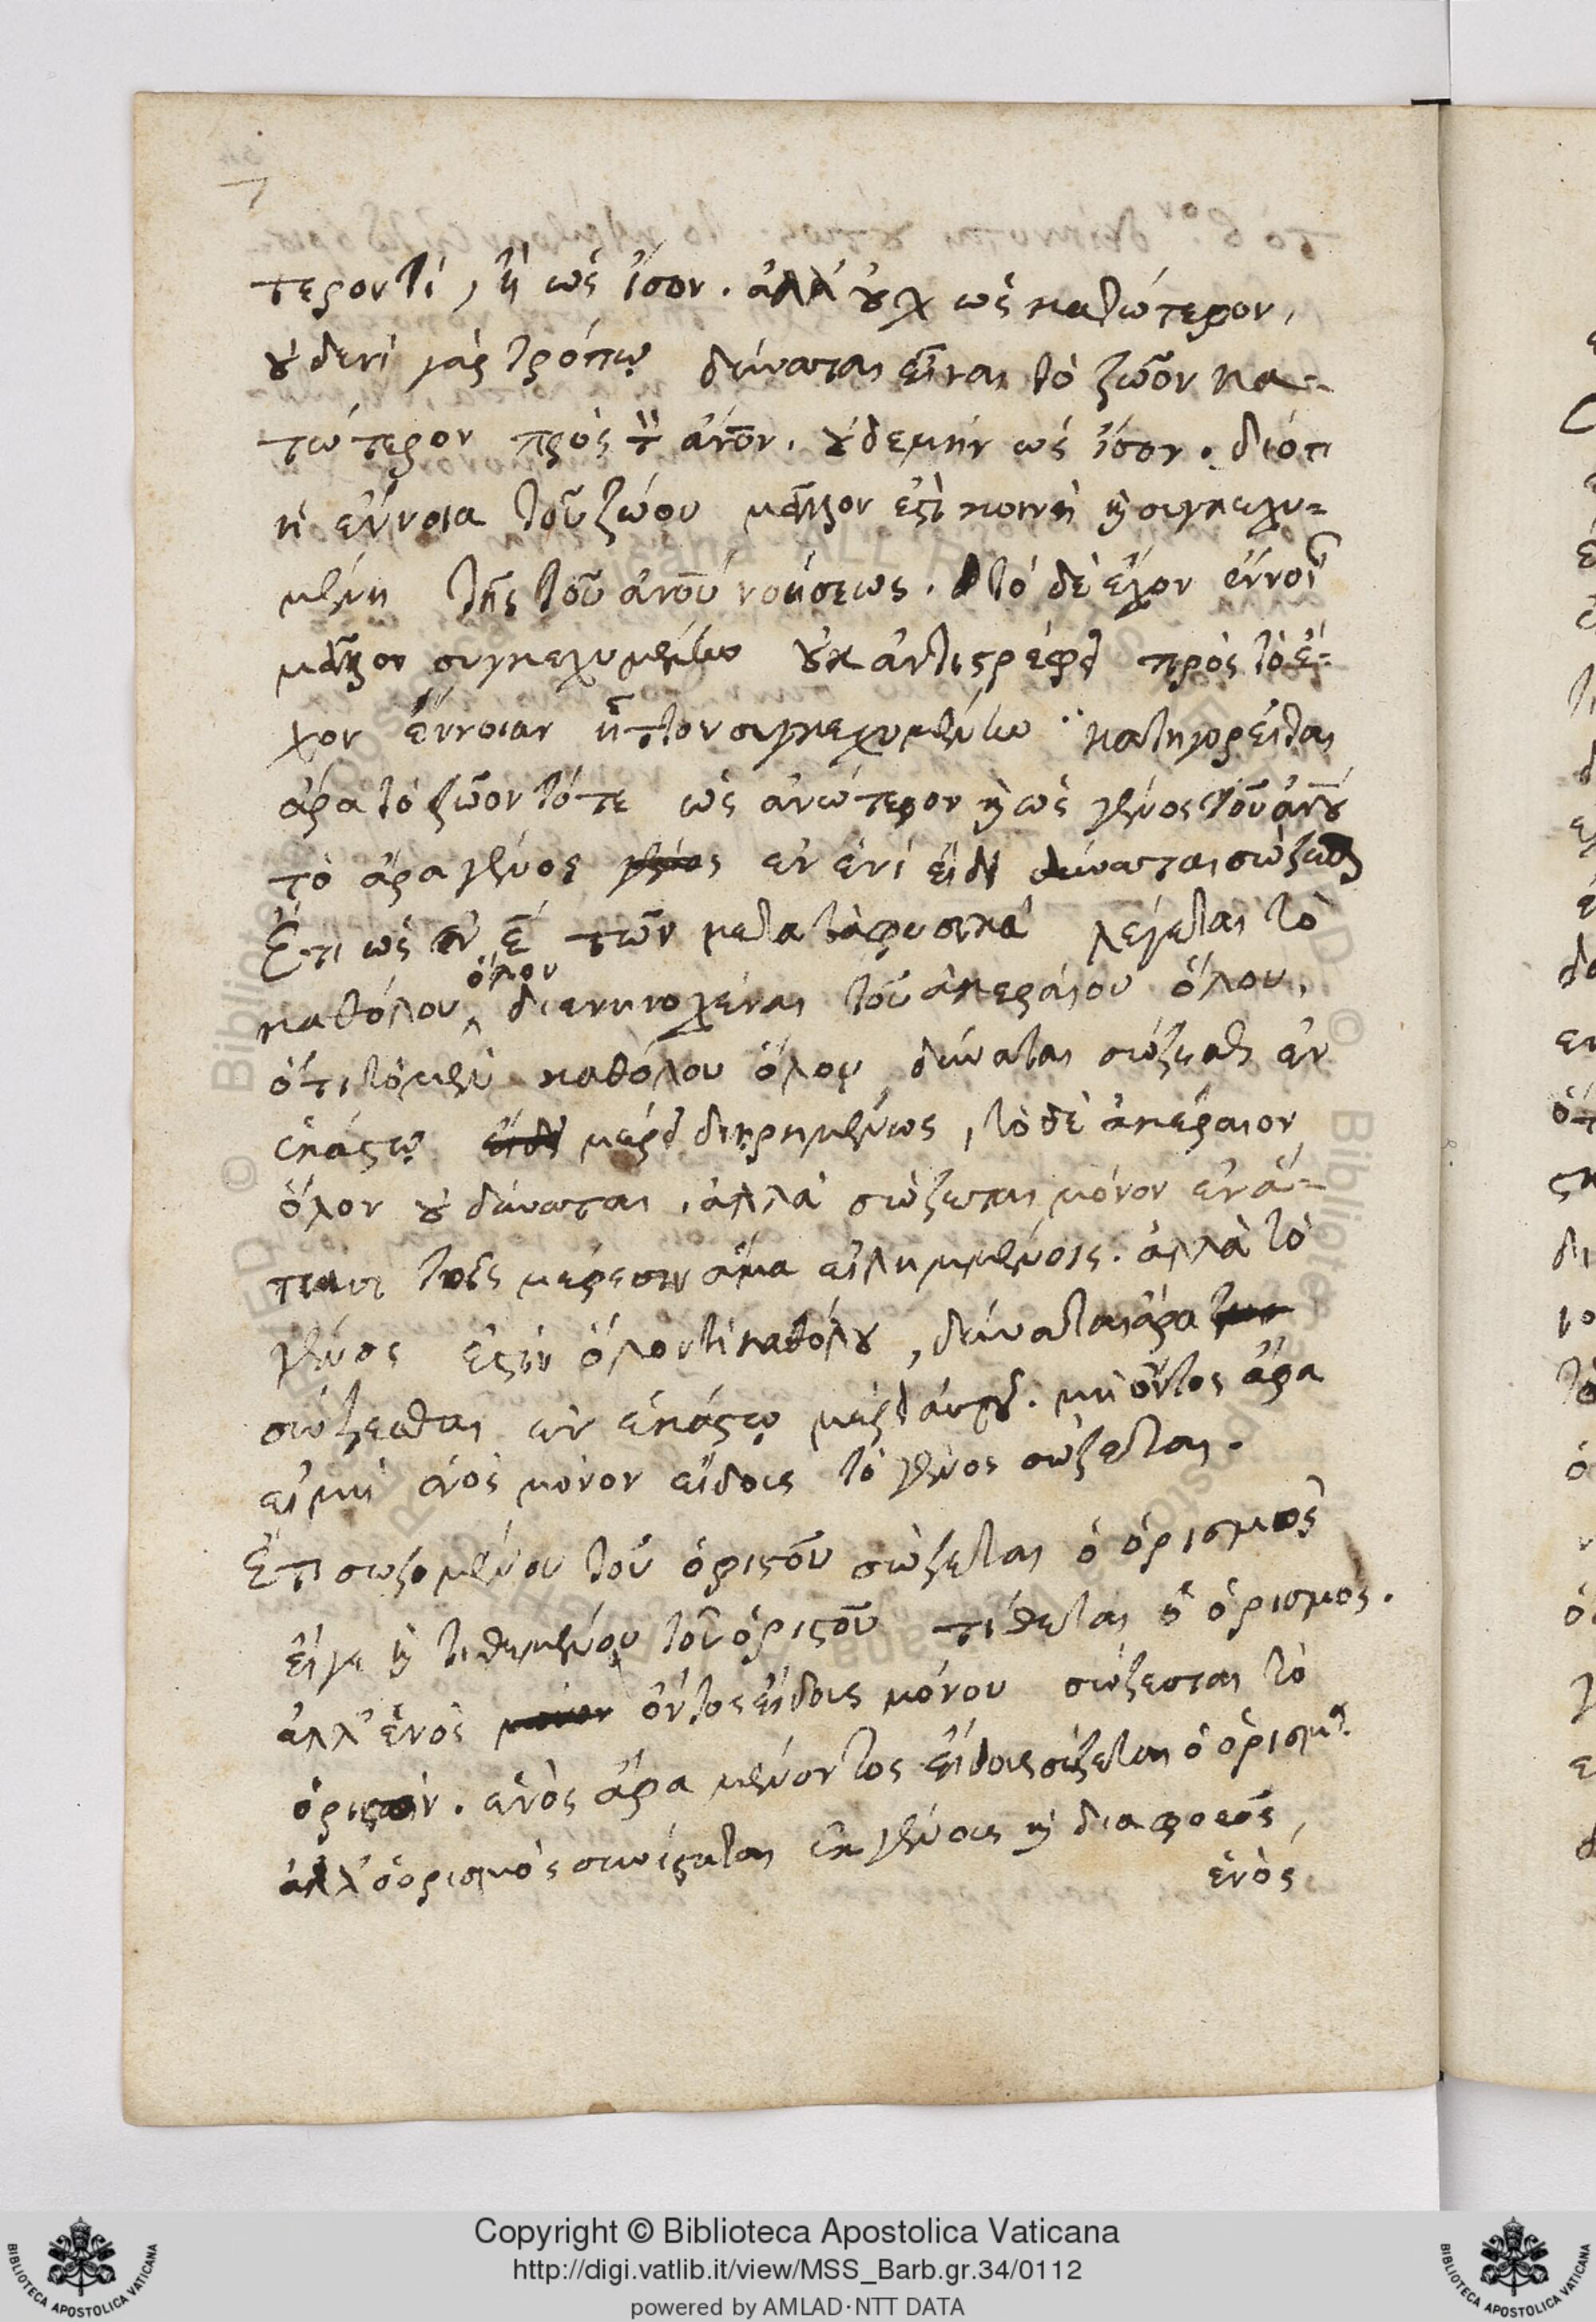 τερον τί, ἢ ὡς ἴσον. ἀλλ' οὐχ ὡς κατώτερον,
οὐδενὶ γὰρ τρόπῳ δύναται εἶναι τὸ ζῶον κα=
τώτερον πρὸς τ̈ ἀνο͞ν. οὐδεμὴν ὡς ἴσον. διότι
ἡ ἔννοια τοῦ ζώου μᾶλλον ἐστὶ κοινὴ ϗ συγκεχυ=
μένη τῆς τοῦ ἀνο͞υ νοήσεως. τὸ δὲ ἔχον ἔννοι
μᾶλλον συγκεχυμένην οὐκ ἀντιστρέφει πρὸς τὸ ἔ=
χον ἔννοιαν ἧττον συγκεχυμένην κατηγορεῖται
ἄρα τὸ ζῶον τότε ὡς ἀνώτερον ϗ ὡς γένος τοῦ ἀνο͞υ
τὸ ἄρα γένος γένος ἐν ἑνὶ εἴδει δύναται σώζεσθαι
Ἔτι ὡς ἐν ε̄ τῶν μετὰ τὰ φυσικὰ λέγεται τὸ
ὅλον
καθόλου διενηνοχέναι τοῦ ἀκεραίου ὅλου,
ὅτι τὸ μὲν καθόλου ὅλον δύναται σώζεσθαι ἐν
ἑκάστῳ εἴδει μέρει διῃρημένως, τὸ δὲ ἀκέραιον
ὅλον οὐ δύναται, ἀλλὰ σώζεται μόνον ἐν ἅ=
πασι τοῖς μέρεσιν ἅμα εἰλημμένοις. ἀλλὰ τὸ
γένος ἐστὶν ὅλον τὶ καθόλου, δύναται ἄρα
σώζεσθαι ἐν ἑκάστῳ μέρει αὐτοῦ. μὴ ὄντος ἄρα
εἰμὴ ἑνὸς μόνον εἴδους τὸ γένος σώζεται.
Ἔτι σωζομένου τοῦ ὁριστοῦ σώζεται ὁ ὁρισμὸς
εἴγε ϗ τιθεμένου τοῦ ὁριστοῦ τίθεται ὁ ὁρισμός.
ἀλλ' ἑνὸς μόνον ὄντος εἴδους μόνου σώζεται τὸ
ὁριστόν. ἑνὸς ἄρα μένοντος εἴδους σώζεται ὁ ὁρισμός.
ἀλλ' ὁ ὁρισμὸς συνίσταται ἐκ γένους ϗ διαφορᾶς,
ἑνὸς
Copyright © Biblioteca Apostolica Vaticana
http://digi.vatlib.it/view/MSS_Barb.gr.34/0112
powered by AMLAD·NTT DATA